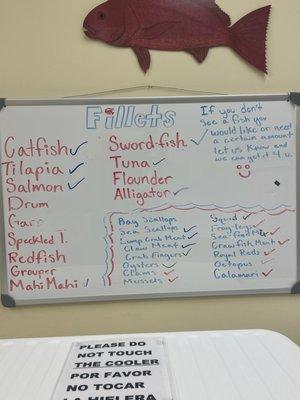 Fillets
If you don't
see a fish you
would like or need
a certain amount
let us know and
we can get it 4 u.
Catfish ✓
Tilapia ✓
Salmon ✓
Drum
Gars
Speckled T.
Redfish
Grouper
Mahi Mahi ✓
Sword-fish ✓
Tuna ✓
Flounder
Alligator ✓
Bay Scallops
Sea Scallops ✓
Lump Crab Meat ✓
Claw Meat ✓
Crab Fingers ✓
Oysters ✓
Clams ✓
Mussels ✓
Squid ✓
Frog legs ✓
Crawfish Meat ✓
Royal Reds ✓
Octopus
Calamari ✓
PLEASE DO
NOT TOUCH
THE COOLER
POR FAVOR
NO TOCAR
LA HIELERA